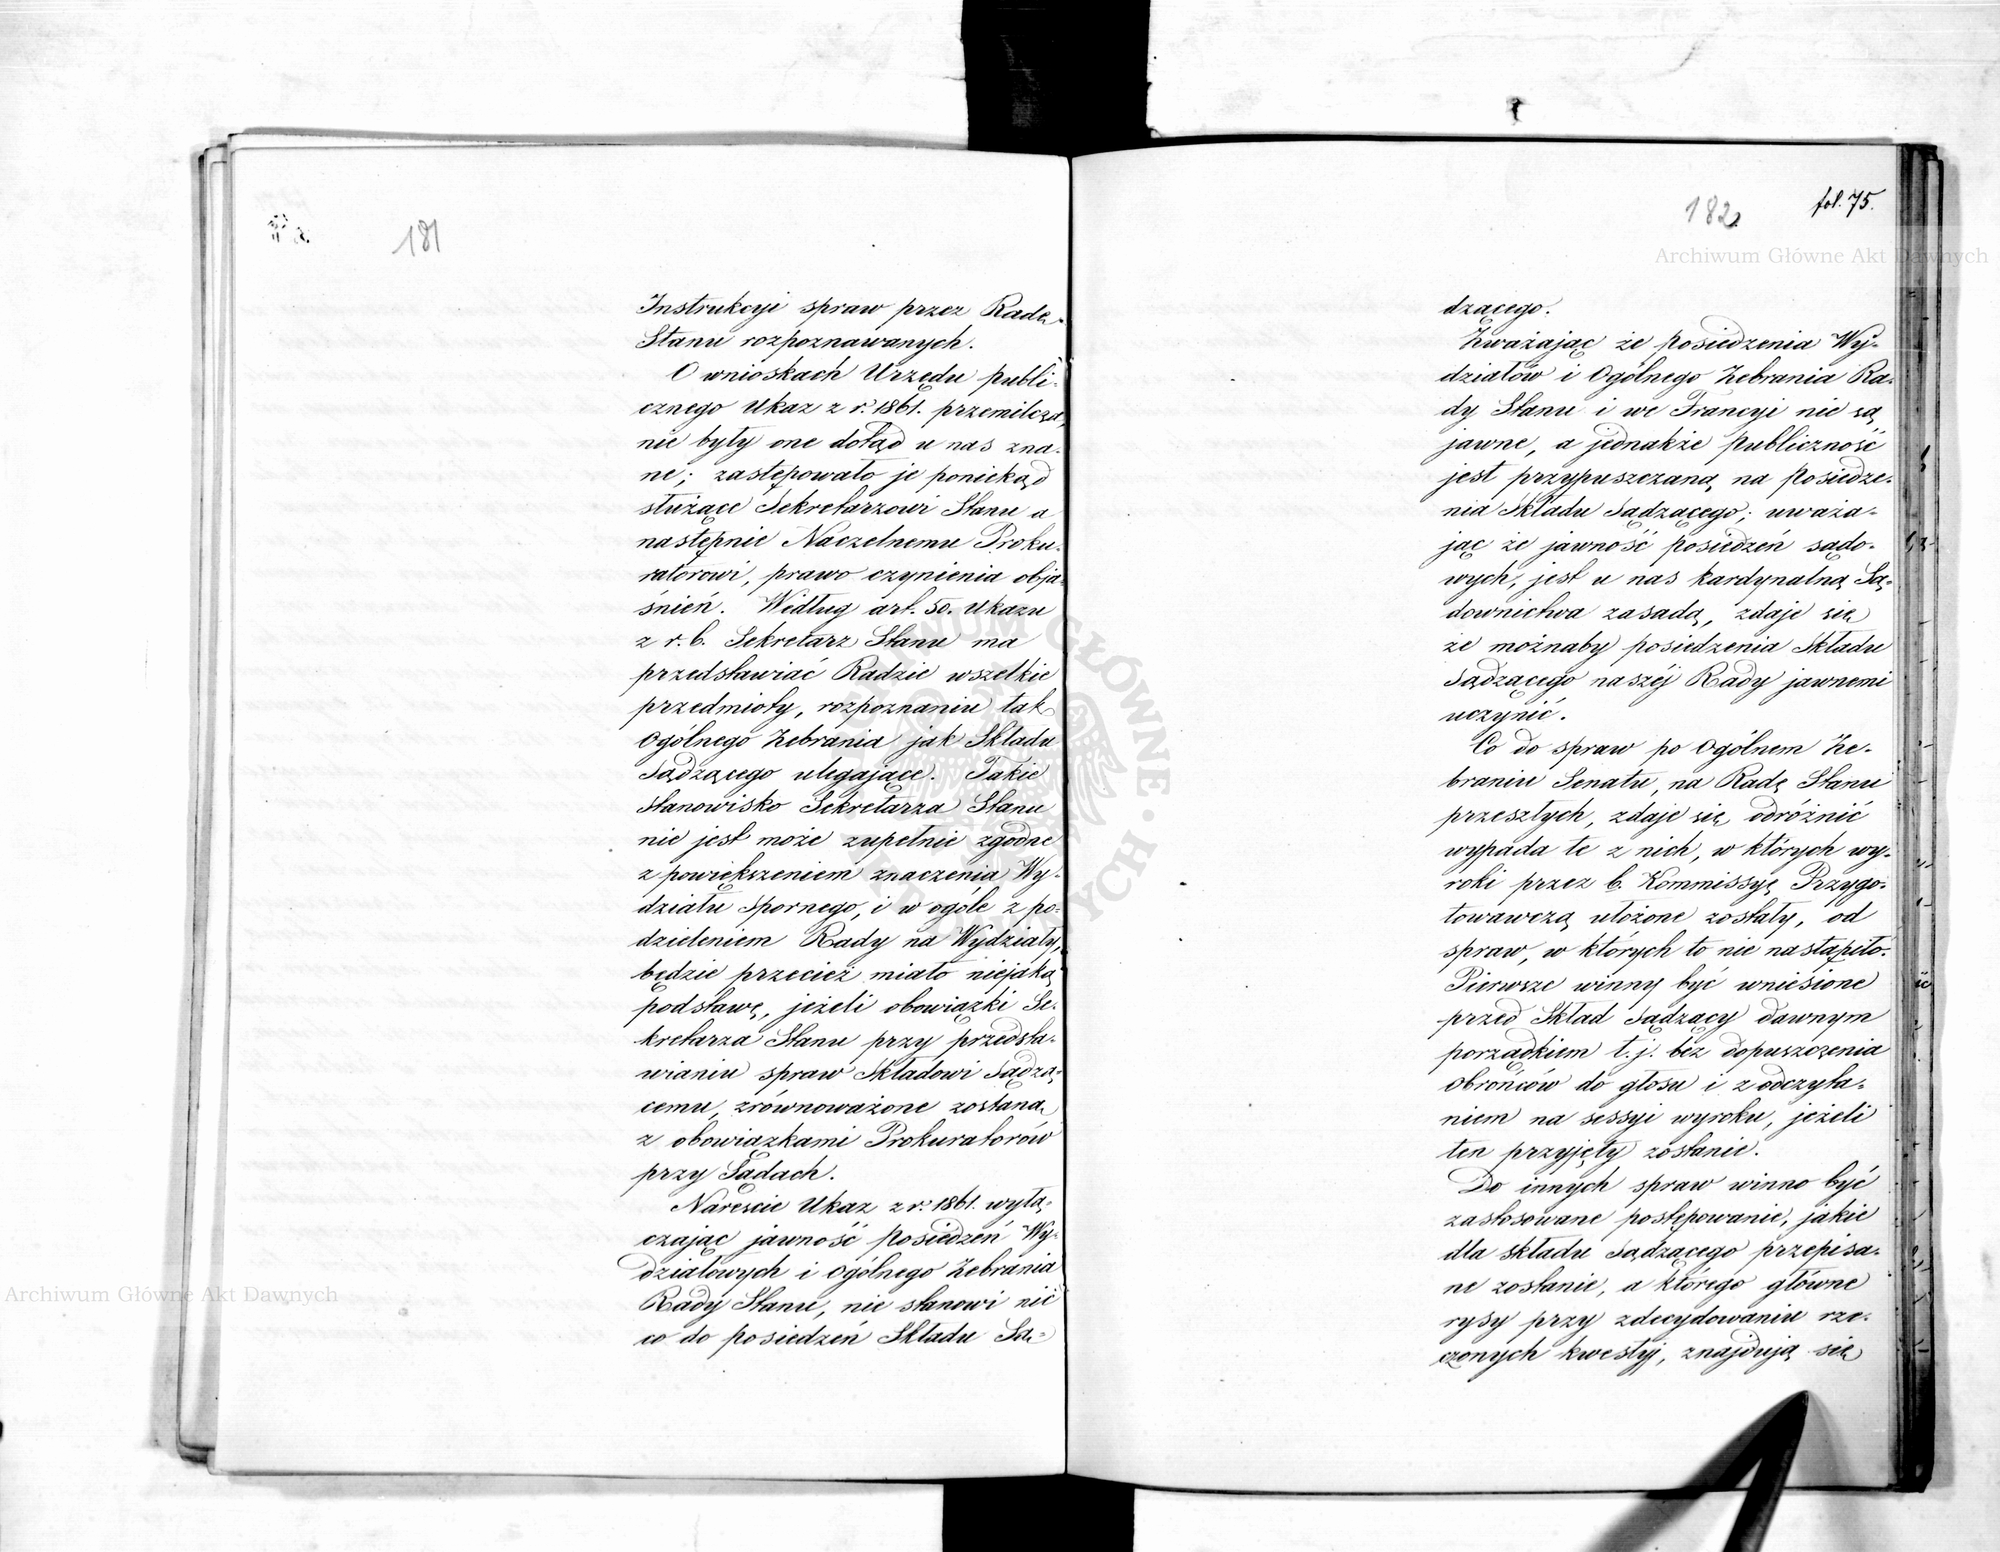 181
Instrukcyi spraw przez Radę
Stanu rozpoznawanych.
O wnioskach Urzędu publi-
cznego Ukaz z r. 1861. przemilcza,
nie były one dotąd u nas zna-
ne; zastępowało je poniekąd
służące Sekretarzowi Stanu a
następnie Naczelnemu Proku-
ratorowi, prawo czynienia obja-
śnień. Według art. 50. Ukazu
z r. b. Sekretarz Stanu ma
przedstawiać Radzie wszelkie
przedmioty, rozpoznaniu tak
Ogólnego Zebrania jak Składu
Sądzącego ulegające. Takie
stanowisko Sekretarza Stanu
nie jest może zupełnie zgodne
z powiększeniem znaczenia Wy-
działu Spornego, i w ogóle z po-
dzieleniem Rady na Wydziały,
będzie przecież miało niejaką
podstawę, jeżeli obowiązki Se-
kretarza Stanu przy przedsta-
wianiu spraw Składowi Sądzą-
cemu, zrównoważone zostaną
z obowiązkami Prokuratorów
przy Sądach.
Nareszcie Ukaz z r. 1861. wyłą-
czając jawność Posiedzeń Wy-
działowych i Ogólnego Zebrania
Rady Stanu, nie stanowi nic
co do posiedzeń Składu Są-
182.
fol. 75.
Archiwum Główne Akt Dawnych
dzącego.
Zważając że posiedzenia Wy-
działów i Ogólnego Zebrania Ra-
dy Stanu i we Francyi nie są
jawne, a jednakże publiczność
jest przypuszczaną na Posiedze-
nia Składu Sądzącego; uważa-
jąc że jawność posiedzeń sądo-
wych, jest u nas kardynalną Są-
downictwa zasadą, zdaje się
że możnaby posiedzenia Składu
Sądzącego naszéj Rady jawnemi
uczynić.
Co do spraw po Ogólnem Ze-
braniu Senatu, na Radę Stanu
przeszłych, zdaje się odróżnić
wypada te z nich, w których wy-
roki przez b. Kommissyę Przygo-
towawczą ułożone zostały, od
spraw, w których to nie nastąpiło.
Pierwsze winny być wniesione
przed Skład Sądzący dawnym
porządkiem t. j. bez dopuszczenia
Obrońców do głosu i z odczyta-
niem na sessyi wyroku, jeżeli
ten przyjęty zostanie.
Do innych spraw winno być
zastosowane postępowanie, jakie
dla składu Sądzącego przepisa-
ne zostanie, a którego główne
rysy przy zdecydowaniu rze-
czonych kwestyj, znajdują się
Archiwum Główne Akt Dawnych